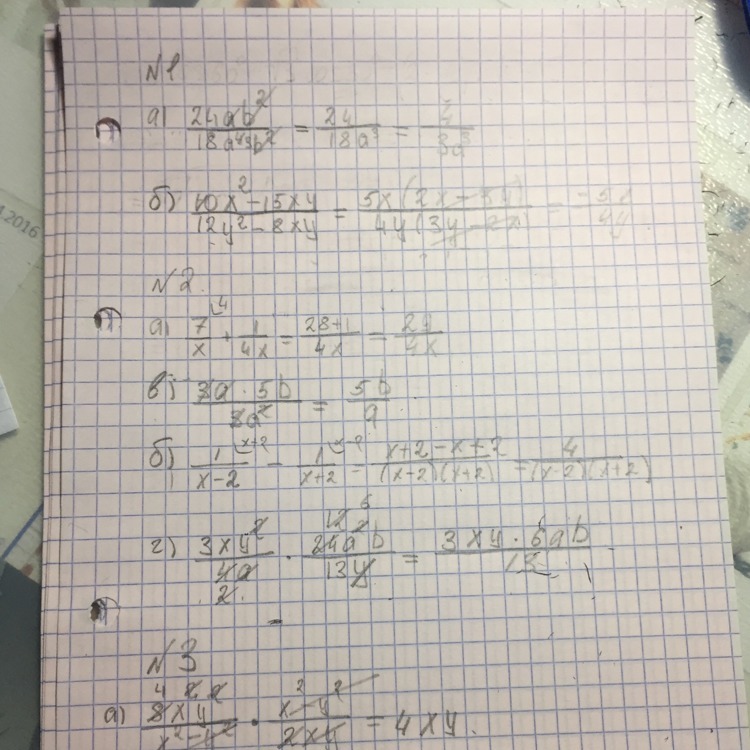 N1
а) 24ab²/18a⁴b² = 24/18a³ = 4/3a³
б) 10x²-15xy/12y²-8xy = 5x(2x-3y)/4y(3y-2x) = -5x/4y
N2
а) 7/x + 1/4x = 28+1/4x = 29/4x
в) 3a·5b/3a² = 5b/a
б) 1/x-2 - 1/x+2 = x+2-x+2/(x-2)(x+2) = 4/(x-2)(x+2)
г) 3xy²/4a · 24a²b/13y = 3xy·6ab/13
N3
а) 8x²y²/x²-y² · x²-y²/2xy = 4xy.
.2016